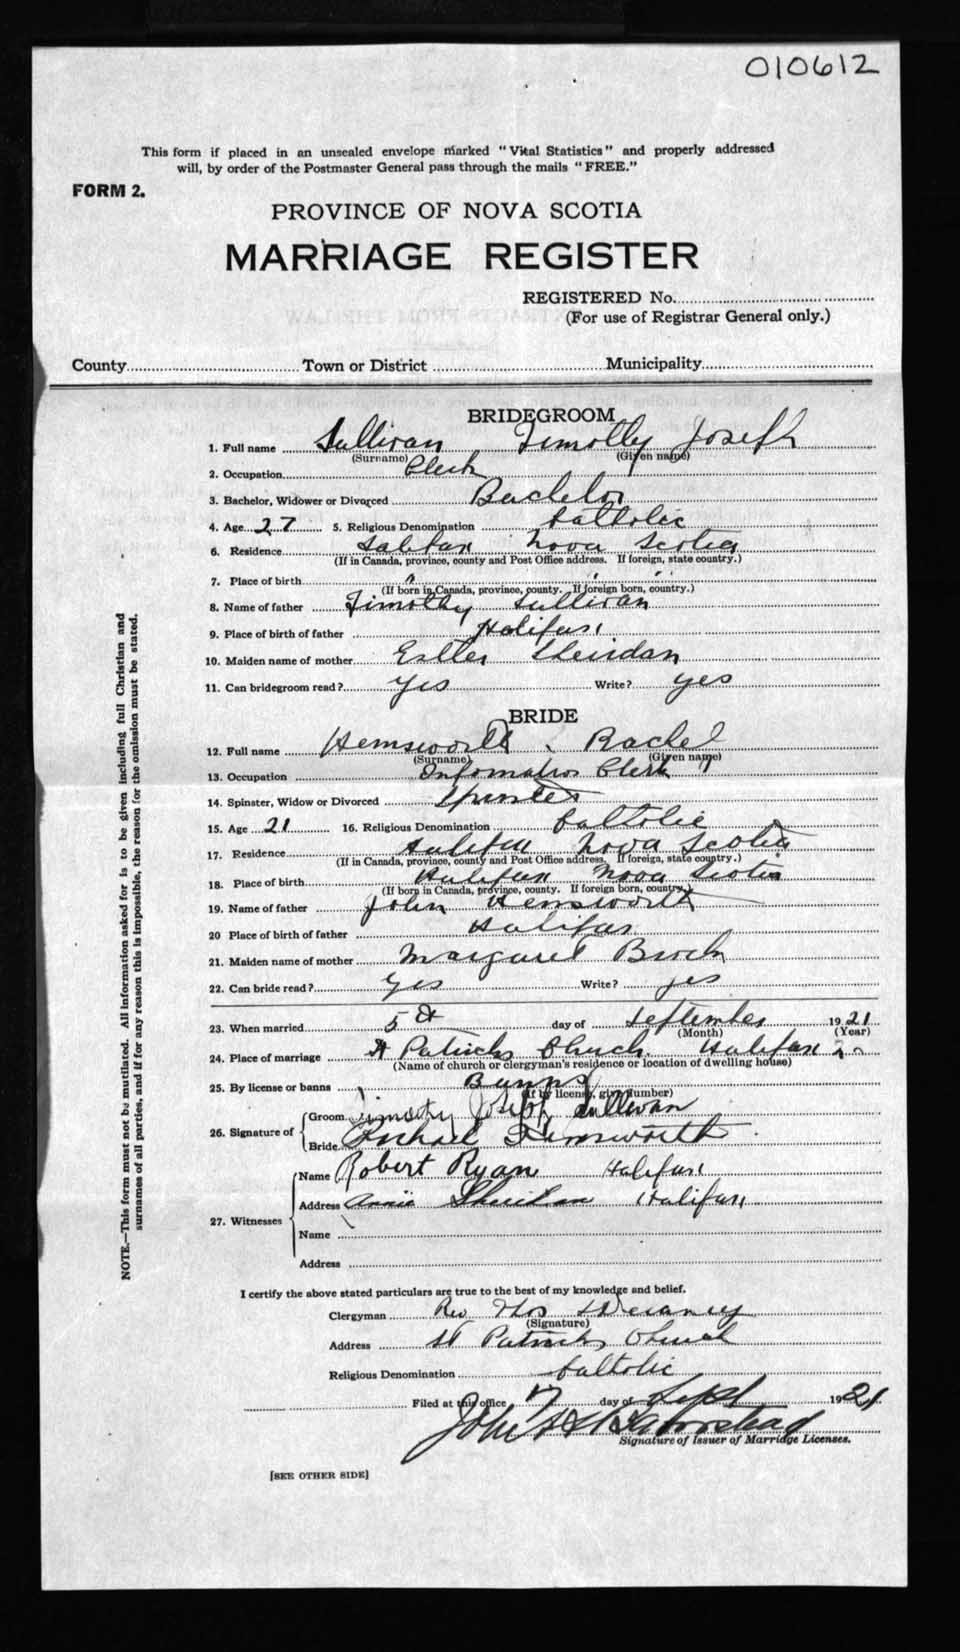 010612
This form if placed in an unsealed envelope marked "Vital Statistics" and properly addressed
will, by order of the Postmaster General pass through the mails "FREE."
FORM 2.
PROVINCE OF NOVA SCOTIA
MARRIAGE REGISTER
REGISTERED No.
(For use of Registrar General only.)
County Town or District Municipality
BRIDEGROOM
1. Full name Sullivan Timothy Joseph
(Surname) (Given name)
2. Occupation Clerk
3. Bachelor, Widower or Divorced Bachelor
4. Age 27 5. Religious Denomination Catholic
6. Residence Halifax Nova Scotia
(If in Canada, province, county and Post Office address. If foreign, state country.)
7. Place of birth " " "
(If born in Canada, province, county. If foreign born, country.)
8. Name of father Timothy Sullivan
9. Place of birth of father Halifax
10. Maiden name of mother Esther Sheridan
11. Can bridegroom read? Yes Write? yes
BRIDE
12. Full name Hemsworth Rachel
(Surname) (Given name)
13. Occupation Information Clerk
14. Spinster, Widow or Divorced Spinster
15. Age 21 16. Religious Denomination Catholic
17. Residence Halifax Nova Scotia
(If in Canada, province, county and Post Office address. If foreign, state country.)
18. Place of birth Halifax Nova Scotia
(If born in Canada, province, county. If foreign born, country.)
19. Name of father John Hemsworth
20 Place of birth of father Halifax
21. Maiden name of mother Margaret
22. Can bride read? Yes Write? yes
23. When married 5th day of September 1921
(Month) (Year)
24. Place of marriage St Patricks Church Halifax
(Name of church or clergyman's residence or location of dwelling house)
25. By license or banns Banns
(If by license, give number)
26. Signature of Groom Timothy Joseph Sullivan
Bride Rachael Hemsworth
27. Witnesses
Name Robert Ryan Halifax
Address Annie Sheridan Halifax
Name
Address
I certify the above stated particulars are true to the best of my knowledge and belief.
Clergyman Rev Thos
(Signature)
Address St Patricks Church
Religious Denomination Catholic
Filed at this office 17 day of Sept 1921
John
Signature of Issuer of Marriage Licenses.
[SEE OTHER SIDE]
NOTE.—This form must not be mutilated. All information asked for is to be given including full Christian and
surnames of all parties, and if for any reason this is impossible, the reason for the omission must be stated.